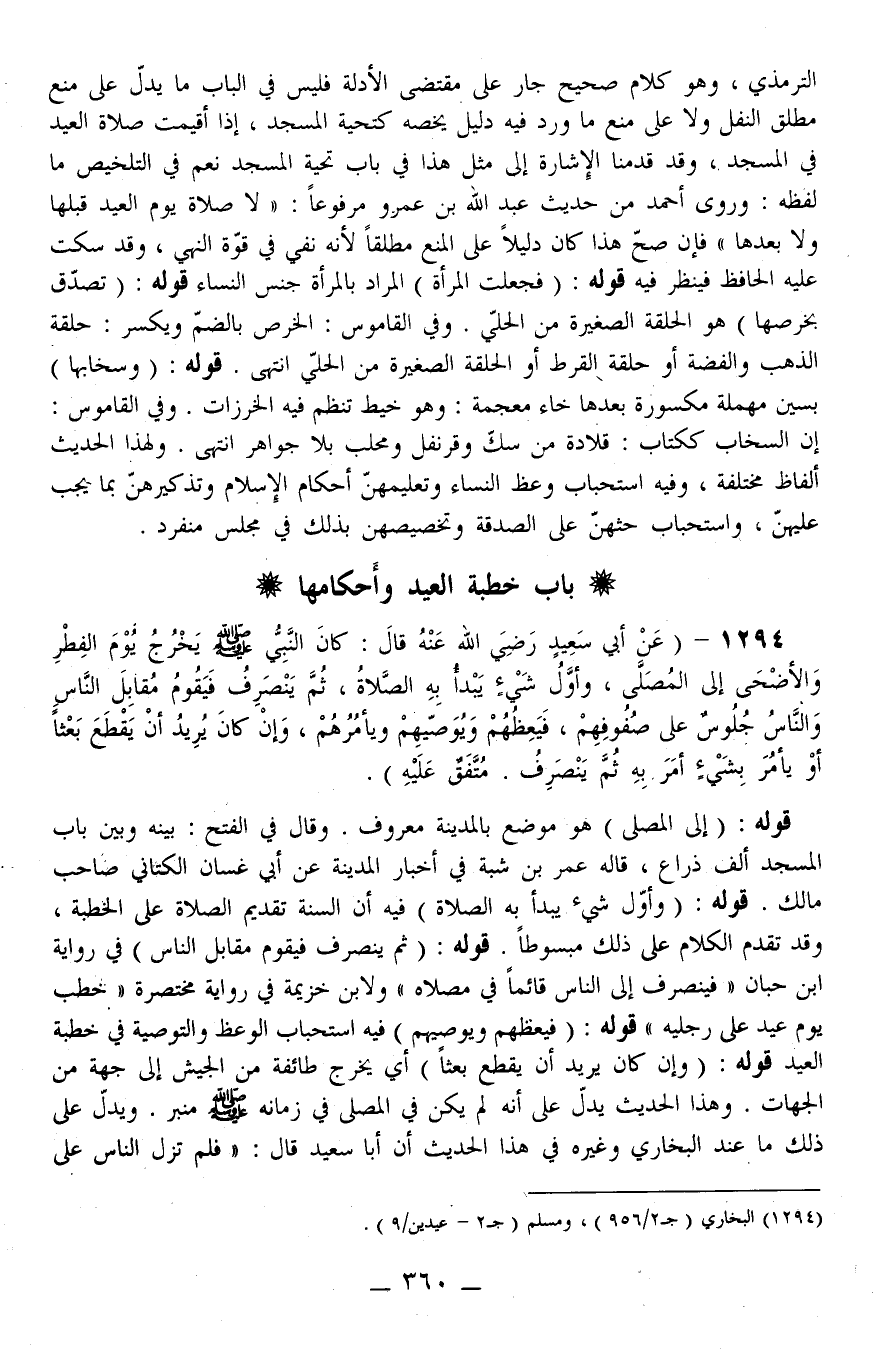 الترمذي ، وهو كلام صحيح جار على مقتضى الأدلة فليس في الباب ما يدلّ على منع
مطلق النفل ولا على منع ما ورد فيه دليل يخصه كتحية المسجد ، إذا أقيمت صلاة العيد
في المسجد ، وقد قدمنا الإِشارة إلى مثل هذا في باب تحية المسجد نعم في التلخيص ما
لفظه : وروى أحمد من حديث عبد الله بن عمرو مرفوعاً : « لا صلاة يوم العيد قبلها
ولا بعدها » فإن صحّ هذا كان دليلاً على المنع مطلقاً لأنه نفي في قوّة النهي ، وقد سكت
عليه الحافظ فينظر فيه قوله : ( فجعلت المرأة ) المراد بالمرأة جنس النساء قوله : ( تصدّق
بخرصها ) هو الحلقة الصغيرة من الحليّ . وفي القاموس : الخرص بالضمّ ويكسر : حلقة
الذهب والفضة أو حلقة القرط أو الحلقة الصغيرة من الحليّ انتهى . قوله : ( وسخابها )
بسين مهملة مكسورة بعدها خاء معجمة : وهو خيط تنظم فيه الخرزات . وفي القاموس :
إن السخاب ككتاب : قلادة من سكّ وقرنفل ومحلب بلا جواهر انتهى . ولهذا الحديث
ألفاظ مختلفة ، وفيه استحباب وعظ النساء وتعليمهنّ أحكام الإِسلام وتذكيرهنّ بما يجب
عليهنّ ، واستحباب حثهنّ على الصدقة وتخصيصهن بذلك في مجلس منفرد .
❋ باب خطبة العيد وأَحكامها ❋
١٢٩٤ – ( عَنْ أبي سَعِيدٍ رَضِيَ الله عَنْهُ قالَ : كانَ النَّبِيُّ ﷺ يَخْرُجُ يُوْمَ الفِطْرِ
وَالأضْحَى إلى المُصَلَّى ، وأوَّلُ شَيْءٍ يَبْدأُ بِهِ الصَّلاةُ ، ثُمَّ يَنْصَرِفُ فَيَقُومُ مُقابِلَ النَّاسِ
وَالنَّاسُ جُلُوسٌ على صُفُوفِهِمْ ، فَيَعِظُهُمْ وَيُوَصّيهِمْ ويأمُرُهُمْ ، وَإنْ كانَ يُرِيدُ أنْ يَقْطَعَ بَعْثاً
أوْ يأمُرَ بِشَيْءٍ أمَرَ بِهِ ثُمَّ يَنْصَرِفُ . مُتَّفَقٌ عَلَيْهِ ) .
قوله : ( إلى المصلى ) هو موضع بالمدينة معروف . وقال في الفتح : بينه وبين باب
المسجد ألف ذراع ، قاله عمر بن شبة في أخبار المدينة عن أبي غسان الكناني صاحب
مالك . قوله : ( وأوّل شيء يبدأ به الصلاة ) فيه أن السنة تقديم الصلاة على الخطبة ،
وقد تقدم الكلام على ذلك مبسوطاً . قوله : ( ثم ينصرف فيقوم مقابل الناس ) في رواية
ابن حبان « فينصرف إلى الناس قائماً في مصلاه » ولابن خزيمة في رواية مختصرة « خطب
يوم عيد على رجليه » قوله : ( فيعظهم ويوصيهم ) فيه استحباب الوعظ والتوصية في خطبة
العيد قوله : ( وإن كان يريد أن يقطع بعثاً ) أي يخرج طائفة من الجيش إلى جهة من
الجهات . وهذا الحديث يدلّ على أنه لم يكن في المصلى في زمانه ﷺ منبر . ويدلّ على
ذلك ما عند البخاري وغيره في هذا الحديث أن أبا سعيد قال : « فلم تزل الناس على
(١٢٩٤) البخاري ( جـ٩٥٦/٢ ) ، ومسلم ( جـ٢ – عيدين/٩ ) .
— ٣٦٠ —